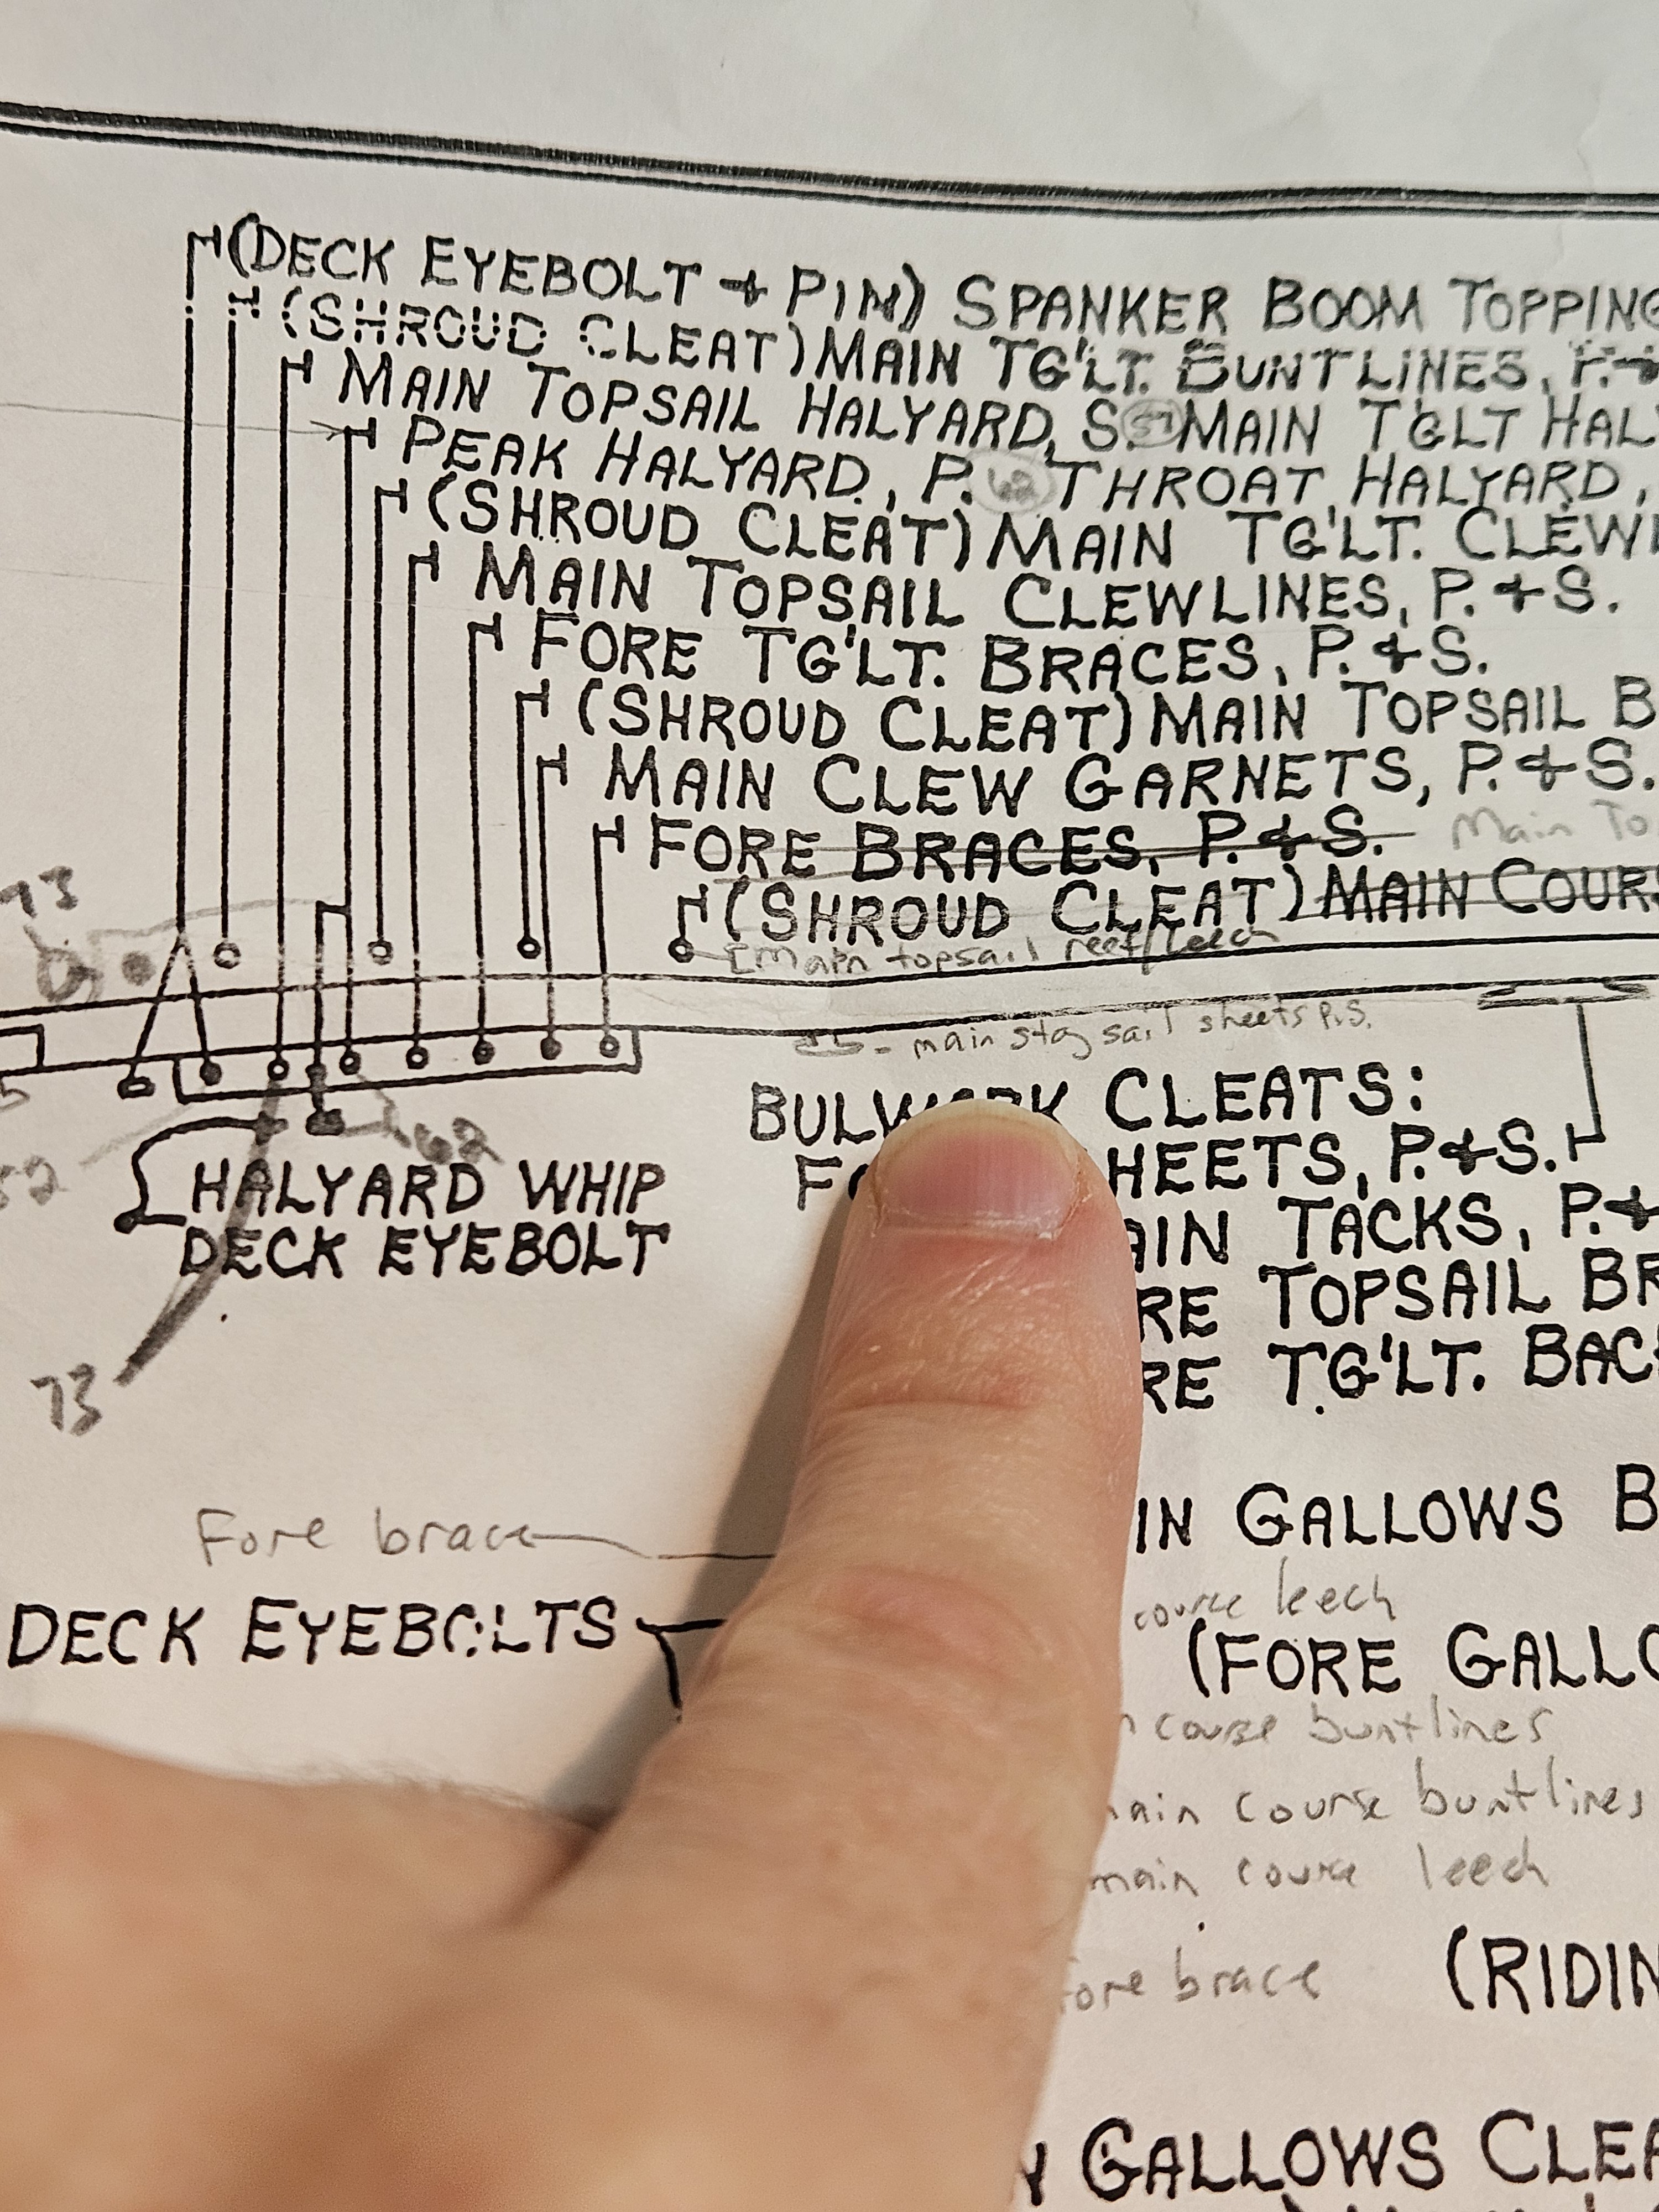 (DECK EYEBOLT & PIN) SPANKER BOOM TOPPING
(SHROUD CLEAT) MAIN TG'LT. BUNTLINES, P. &
MAIN TOPSAIL HALYARD, S. 57 MAIN TGLT HAL
PEAK HALYARD, P. 62 THROAT HALYARD,
(SHROUD CLEAT) MAIN TG'LT. CLEWL
MAIN TOPSAIL CLEWLINES, P. & S.
FORE TG'LT. BRACES, P. & S.
(SHROUD CLEAT) MAIN TOPSAIL B
MAIN CLEW GARNETS, P. & S.
FORE BRACES, P. & S. Main To
73
(SHROUD CLEAT) MAIN COURS
[Main topsail reef/leech
- main stay sail sheets P.S.
BULWARK CLEATS:
62
HALYARD WHIP
DECK EYEBOLT
HEETS, P. & S.
AIN TACKS, P. &
RE TOPSAIL BR
RE TG'LT. BAC
73
IN GALLOWS B
Fore brace
course leech
DECK EYEBOLTS
(FORE GALLO
course buntlines
ain course buntlines
main course leech
ore brace
(RIDIN
GALLOWS CLEA